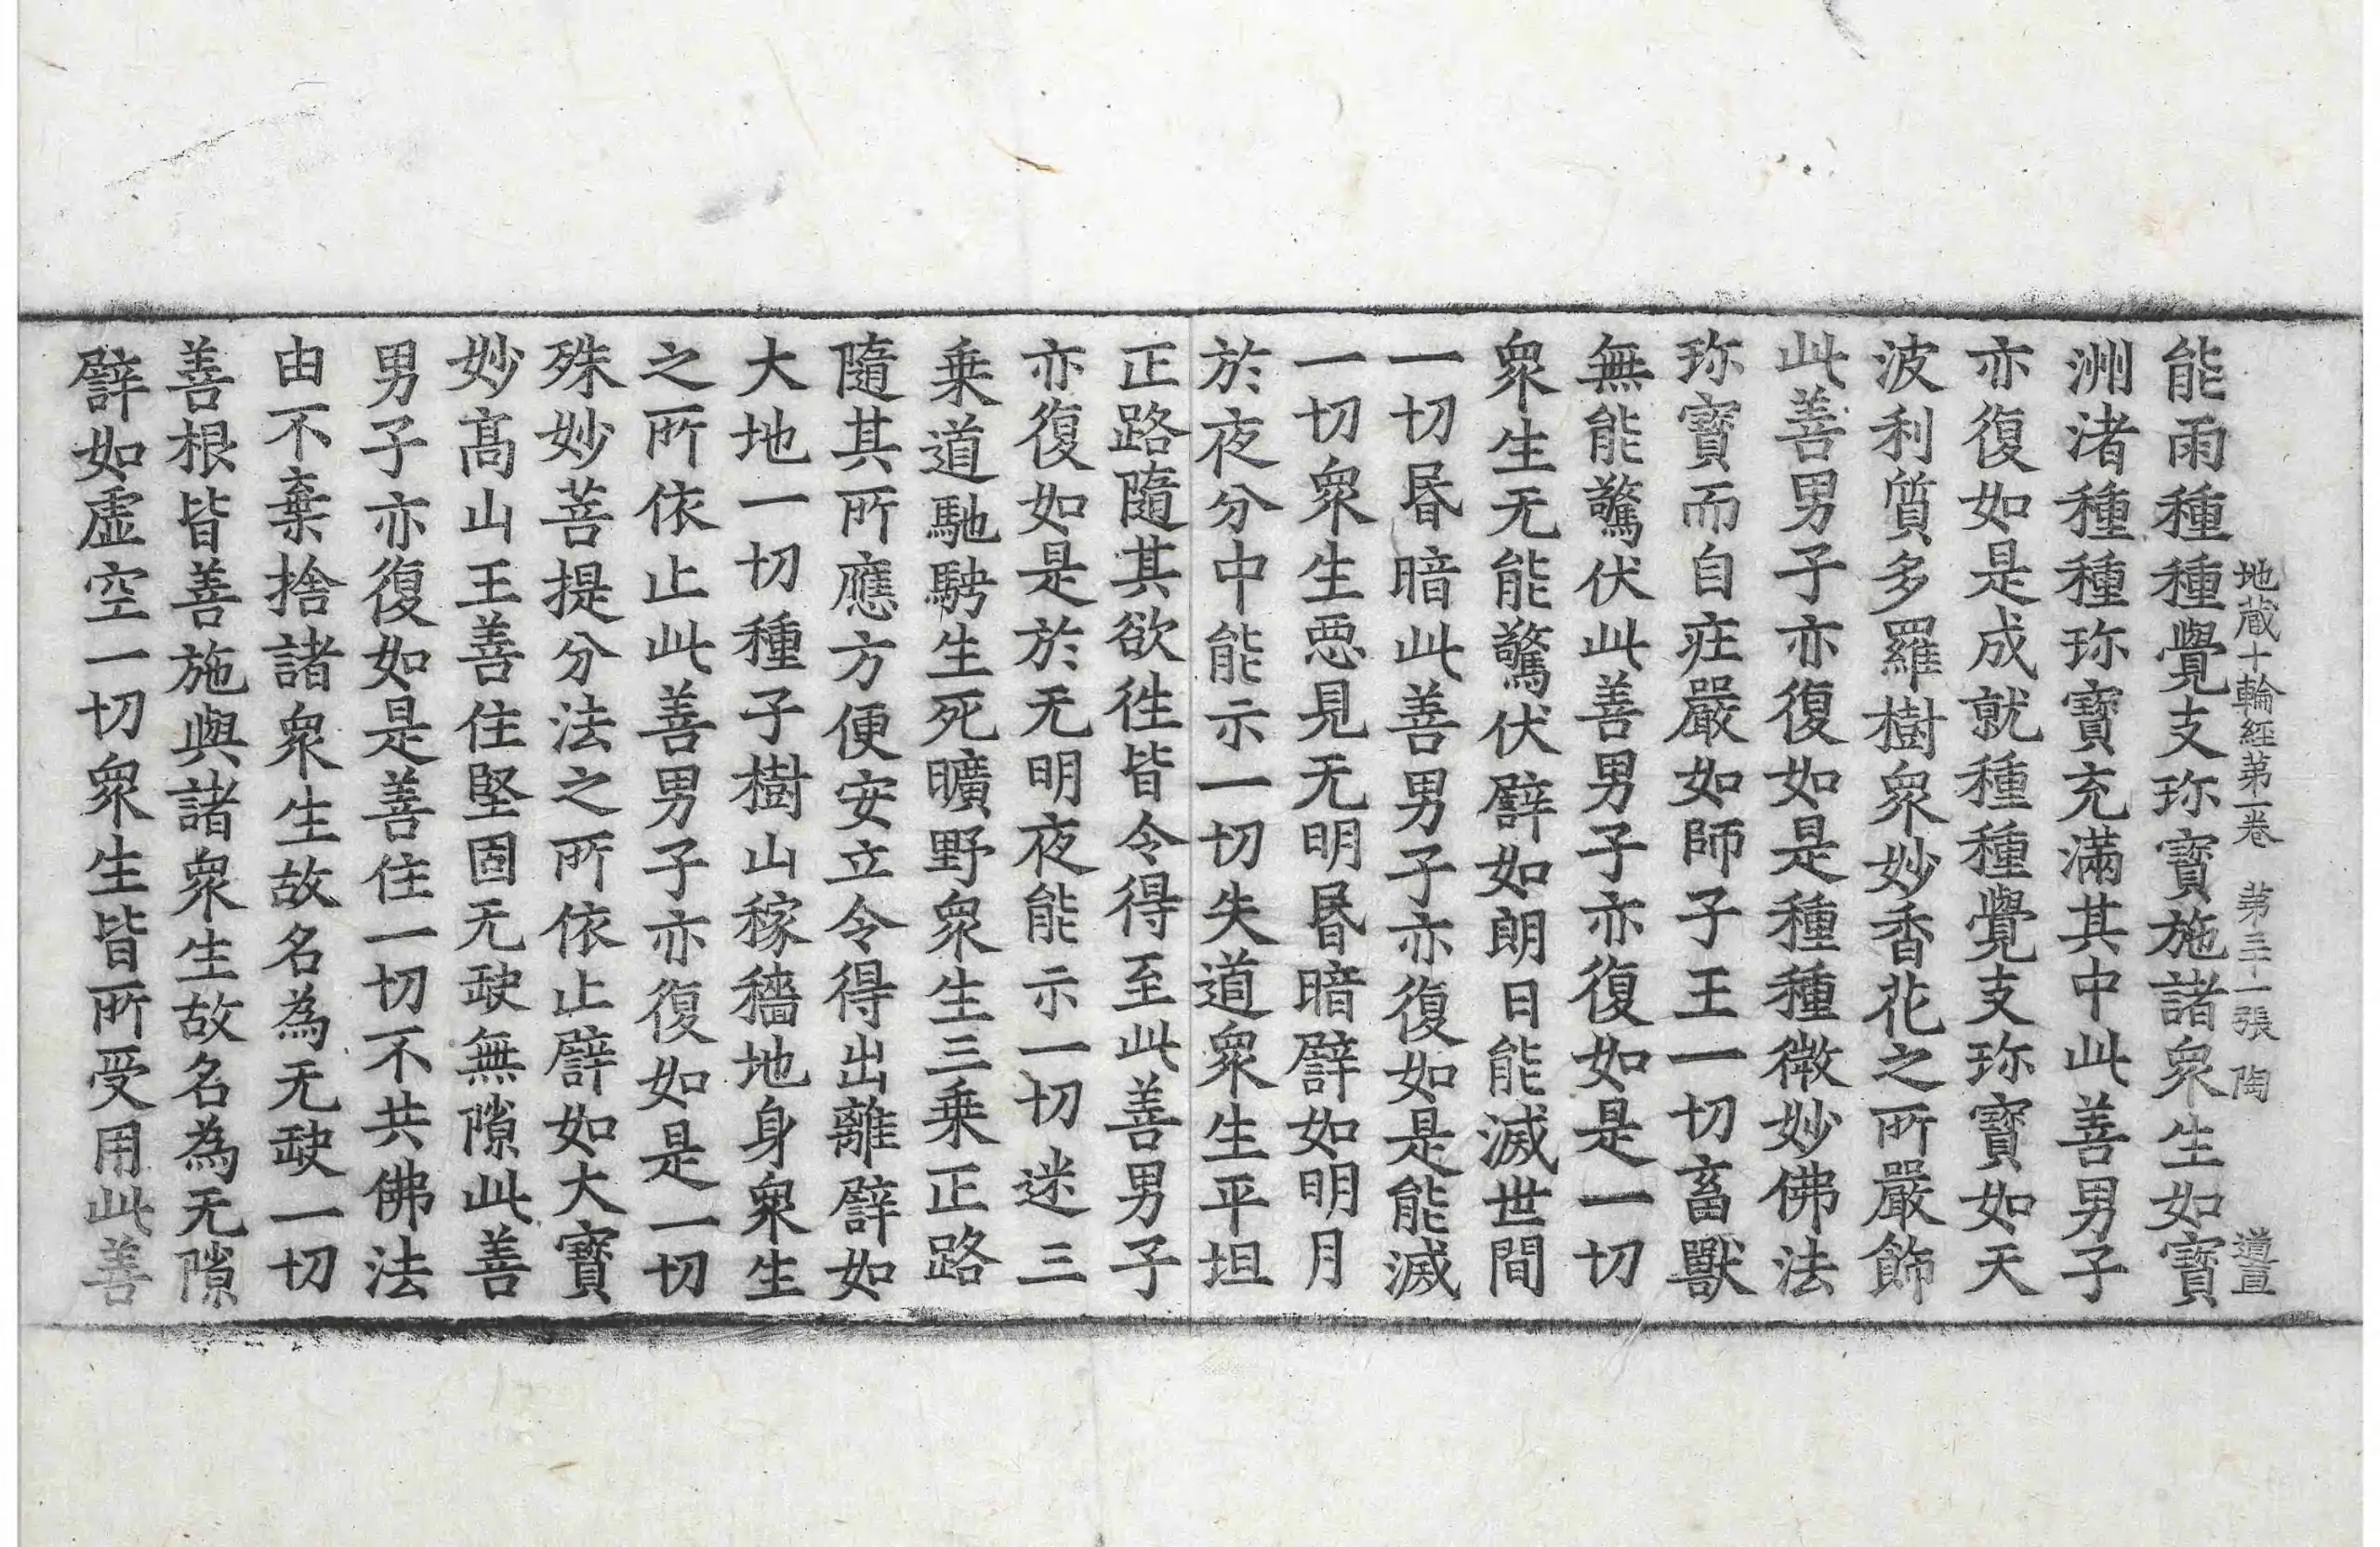 地蔵十輪經第一卷 第三十一張 陶 道亘
能雨種種覺支珎寶施諸衆生如寶
洲渚種種珎寶充滿其中此善男子
亦復如是成就種種覺支珎寶如天
波利質多羅樹衆妙香花之所嚴飾
此善男子亦復如是種種微妙佛法
珎寶而自疘嚴如師子王一切畜獸
無能驚伏此善男子亦復如是一切
衆生无能驚伏譬如朗日能滅世間
一切昬暗此善男子亦復如是能滅
一切衆生惡見无明昬暗譬如明月
於夜分中能示一切失道衆生平坦
正路隨其欲徃皆令得至此善男子
亦復如是於无明夜能示一切迷三
乗道馳騁生死曠野衆生三乗正路
隨其所應方便安立令得出離譬如
大地一切種子樹山稼穡地身衆生
之所依止此善男子亦復如是一切
殊妙菩提分法之所依止譬如大寶
妙髙山王善住堅固无䟽無隙此善
男子亦復如是善住一切不共佛法
由不棄捨諸衆生故名為无䟽一切
善根皆善施與諸衆生故名為无隙
譬如虚空一切衆生皆所受用此善